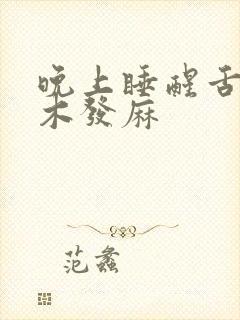 晚上睡醒舌
木發麻
范蠡